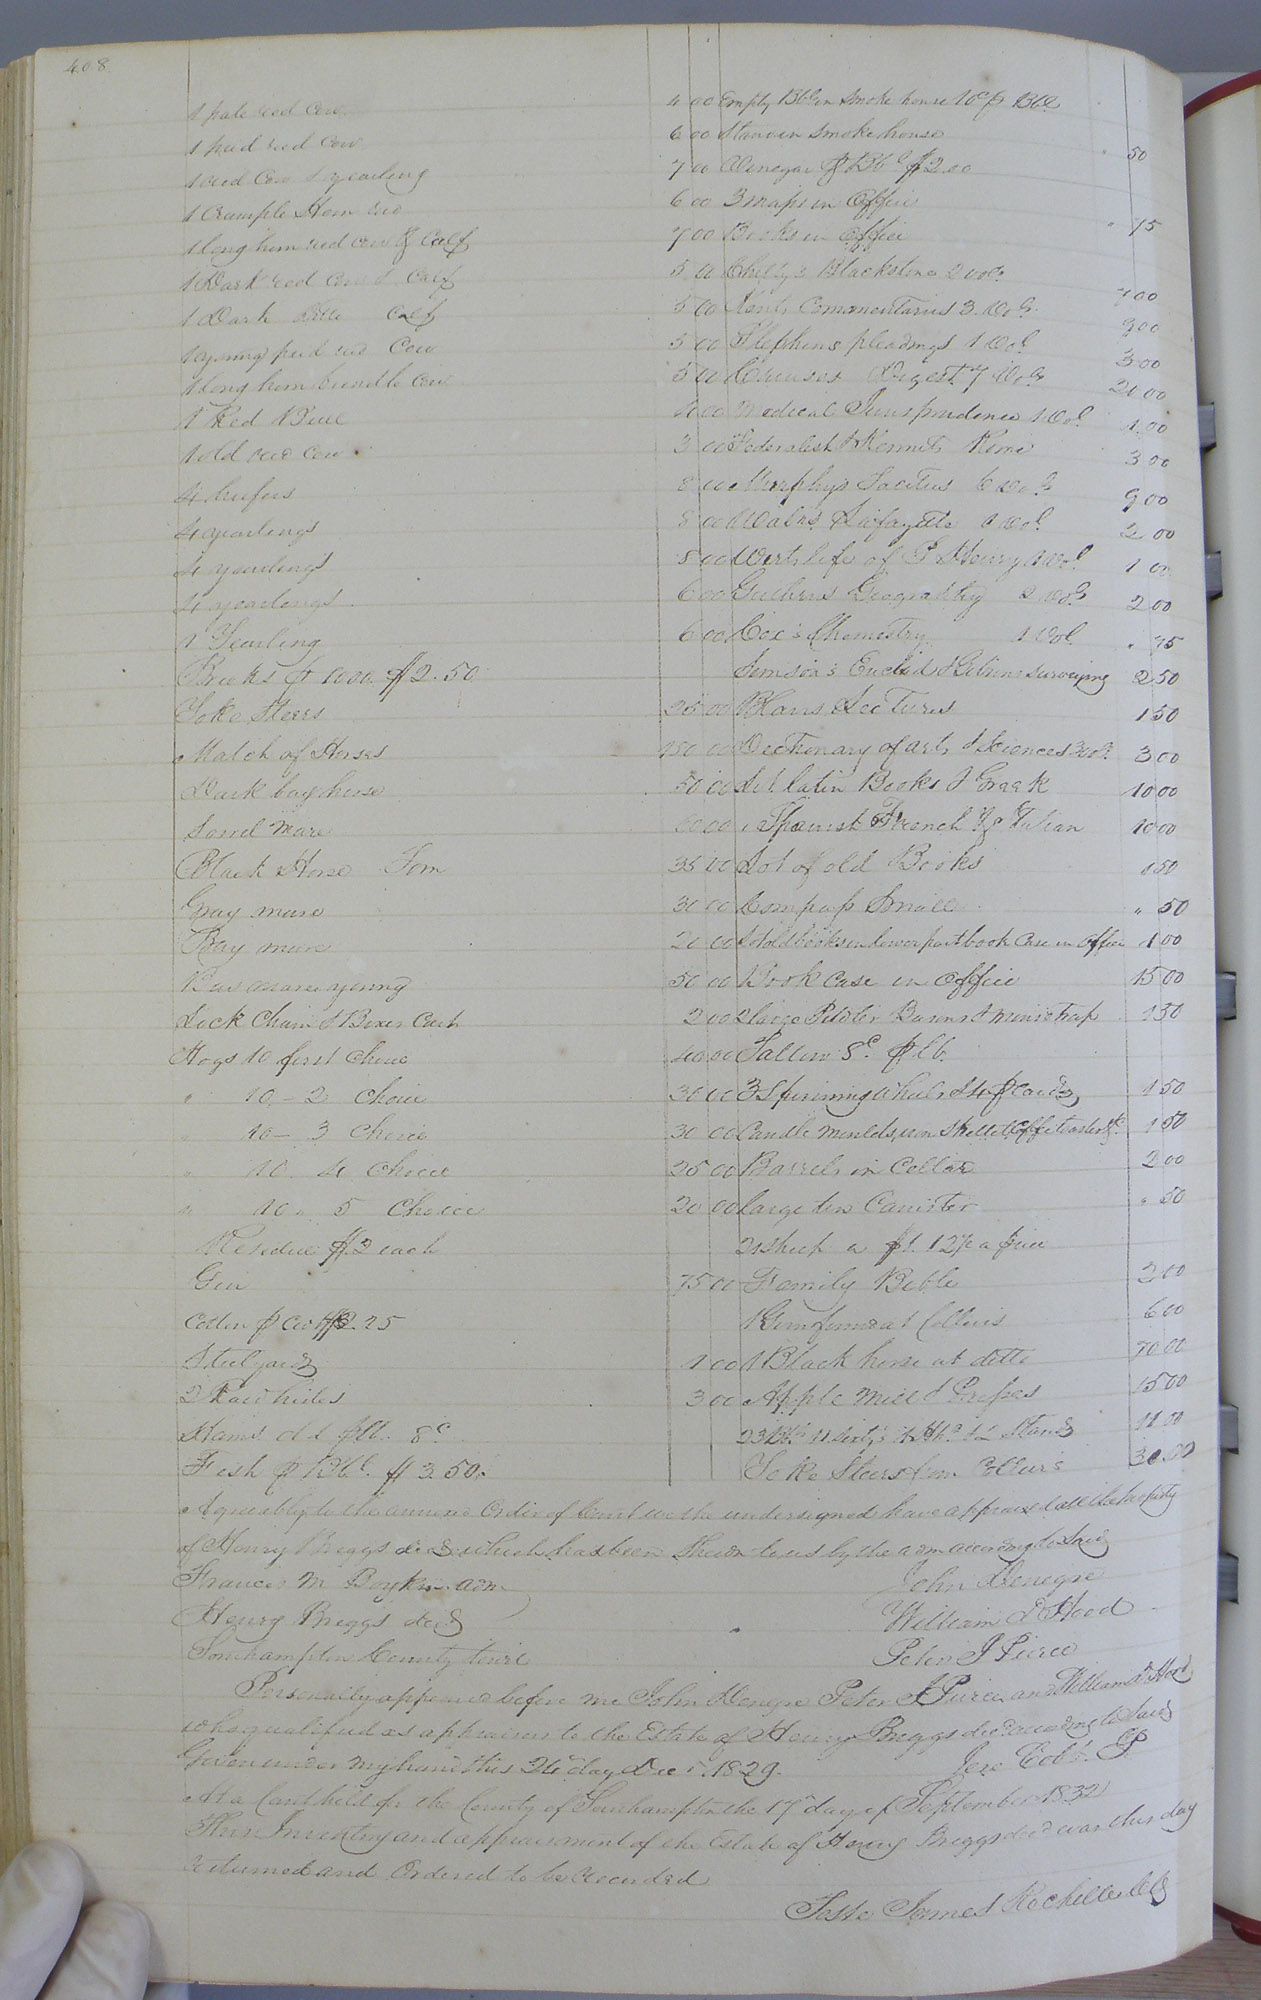 408
1 pale red Cow 4 00
1 pied red Cow 6 00
1 red Cow & yearling 7 00
1 Crumple Horn red 6 00
1 long horn red cow & Calf 7 00
1 Dark red Cow & Calf 5 00
1 Dark Ditto Calf 5 00
1 young pied red Cow 5 00
1 long horn brindle Cow 5 00
1 Red Bull 4 00
1 old red Cow 3 00
4 heifers 8 00
4 yearlings 8 00
4 yearlings 8 00
4 yearlings 6 00
1 Yearling 6 00
Bricks p 1000 $2.50
Yoke Steers 25 00
Match of Horses 150 00
Dark bay horse 50 00
Sorrel Mare 60 00
Black Horse Tom 35 00
Gray mare 30 00
Bay mare 20 00
Bay mare young 50 00
Lock Chain & Boxes Cart 2 00
Hogs 10 first Choice 40 00
" 10 - 2 Choice 30 00
" 10 - 3 Choice 30 00
" 10 4 Choice 25 00
" 10 " 5 Choice 20 00
Residue $2 each
Gin 75 00
Cotton p Cwt $2.25
Steelyards 1 00
2 Raw hides 3 00
Hams old plb. 8c
Fish p Bbl. $3.50
Empty Bbl in Smoke house 10c p Bbl
Stand in Smoke house " 50
Vinegar p Bbl $2.00
3 maps in Office " 75
Books in Office
Chitty's Blackstone 2 vols 7 00
Kents Commentaries 3 Vols 9 00
Stephens pleadings 1 Vol 3 00
Cruises Digest 7 Vols 21 00
Medical Jurisprudence 1 Vol 1 00
Federalist & Kennets Rome 3 00
Murphys Tacitus 6 Vols 9 00
Walns Lafayette 1 Vol 2 00
Wirts life of P Henry 1 Vol 1 00
Guthries Geography 2 Vols 2 00
Cox's Chemestry 1 Vol " 75
Simson's Euclid & Gibsons surveying 2 50
Blairs Lectures 1 50
Dictionary of arts & Sciences 3 vols 3 00
Lot latin Books & Greek 10 00
" Spanish French & Italian 10 00
Lot of old Books 1 50
Compass Small " 50
Lot old books in lower part book Case in Office 1 00
Book Case in Office 15 00
2 large Pewter Basons & mouse trap 1 50
Tallow 8c plb.
3 Spinning wheels & Cards 1 50
Candle moulds, iron Skillet, Coffee toaster &c 1 50
Barrels in Cellar 2 00
Large tin Canister " 50
21 Sheep a $1.12½ a piece
Family Bible 2 00
1 Gun at Colliers 6 00
1 Black horse at ditto 70 00
Apple Mill & Press 15 00
23 Bbs 11 sixty's & 2 Stands 11 00
Yoke Steers from Colliers 30.00
Agreeably to the annexed Order of Court we the undersigned have appraised all the property
of Henry Briggs decd which has been Shewn to us by the adm according to Law
Frances M Boykin adm John Denegre
Henry Briggs decd William D Hood
Southampton County towit Peter J Pierce
Personally appeared before me John Denegre Peter J Pierce and William D Hood
who qualified as appraisers to the Estate of Henry Briggs decd according to Law
Given under my hand this 24 day Decr. 1829. Jere Cobb. JP
At a Court held for the County of Southampton the 17th day of September 1832
This Inventory and appraisement of the Estate of Henry Briggs decd was this day
returned and Ordered to be recorded
Teste James Rochelle Clk